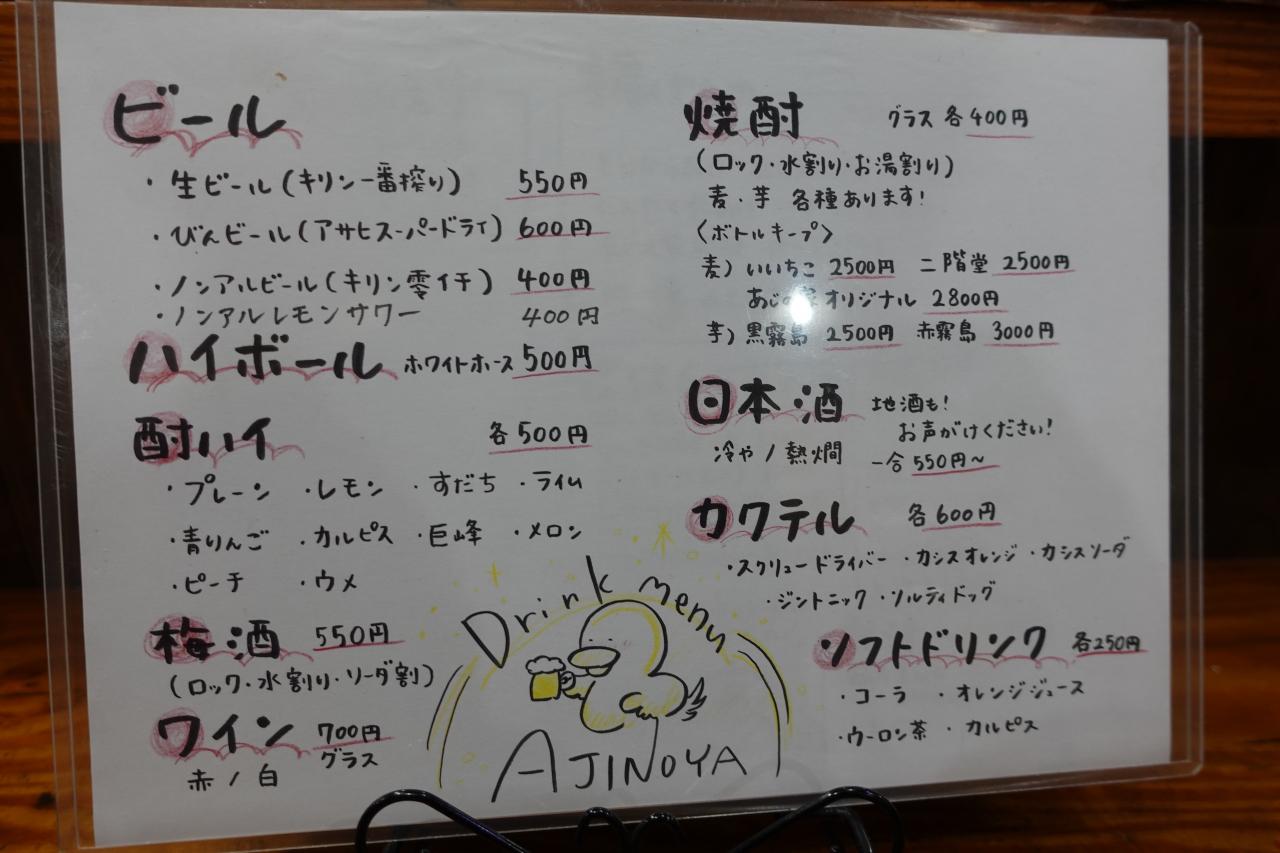 ビール
・生ビール(キリン一番搾り) 550円
・びんビール(アサヒスーパードライ) 600円
・ノンアルビール(キリン零イチ) 400円
・ノンアルレモンサワー 400円
ハイボール ホワイトホース 500円
酎ハイ 各500円
・プレーン ・レモン ・すだち ・ライム
・青りんご ・カルピス ・巨峰 ・メロン
・ピーチ ・ウメ
梅酒 550円
(ロック・水割り・ソーダ割)
ワイン 700円
グラス
赤/白
焼酎 グラス 各400円
(ロック・水割り・お湯割り)
麦・芋 各種あります!
〈ボトルキープ〉
麦)いいちこ 2500円 二階堂 2500円
あじの家オリジナル 2800円
芋)黒霧島 2500円 赤霧島 3000円
日本酒 地酒も!
お声がけください!
冷や/熱燗 一合550円~
カクテル 各600円
・スクリュードライバー ・カシスオレンジ ・カシスソーダ
・ジントニック ・ソルティドッグ
ソフトドリンク 各250円
・コーラ ・オレンジジュース
・ウーロン茶 ・カルピス
Drink menu
AJINOYA